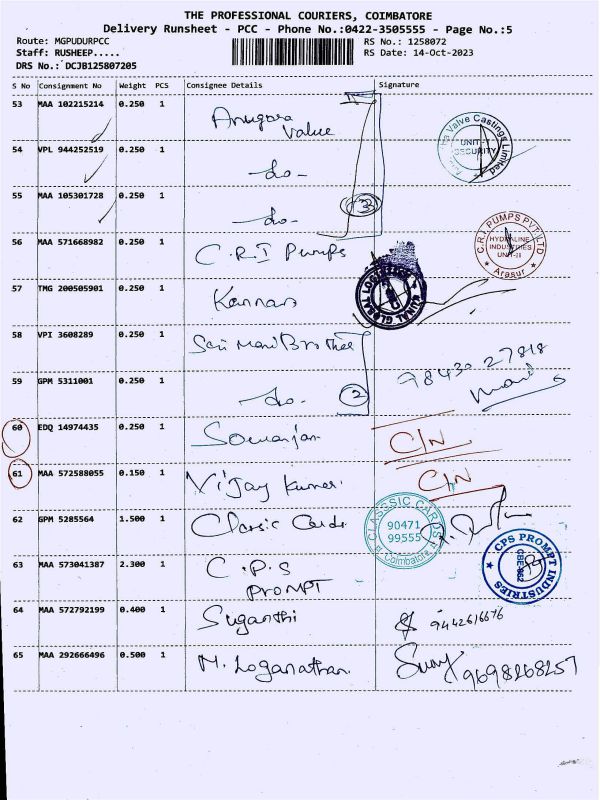 THE PROFESSIONAL COURIERS, COIMBATORE
Delivery Runsheet - PCC - Phone No.:0422-3505555 - Page No.:5
Route: MGPUDURPCC RS No.: 1258072
Staff: RUSHEEP..... RS Date: 14-Oct-2023
DRS No.: DCJB125807205
S No Consignment No Weight PCS Consignee Details Signature
53 MAA 102215214 0.250 1 Anugara Value
54 VPL 944252519 0.250 1 do- Valve Castings Limited UNIT-I SECURITY
55 MAA 105301728 0.250 1 do- 3
56 MAA 571668982 0.250 1 C.R.I Pumps C.R.I. PUMPS PVT LTD HYDRALINE INDUSTRIES UNIT-II Arasur
57 TMG 200505901 0.250 1 Kannan KUNAL GLOBAL LOGISTICS
58 VPI 3608289 0.250 1 Sri Mani Brother
59 GPM 5311001 0.250 1 do. 2 98430 27818 Mani
60 EDQ 14974435 0.250 1 C/N
61 MAA 572588055 0.150 1 Vijay Kumar C/N
62 GPM 5285564 1.500 1 Classic Cards CLASSSIC CARDS 90471 99555 Coimbatore
63 MAA 573041387 2.300 1 C.P.S PROMPT CPS PROMPT INDUSTRIES CBE-062
64 MAA 572792199 0.400 1 Suganthi 9442616676
65 MAA 292666496 0.500 1 M. Loganathan 9698268257